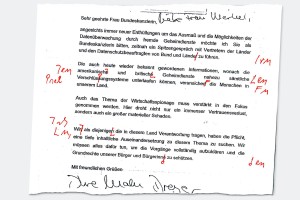 Sehr geehrte Frau Bundeskanzlerin, liebe Frau Merkel,
angesichts immer neuer Enthüllungen um das Ausmaß und die Möglichkeiten der
Datenüberwachung durch fremde Geheimdienste möchte ich Sie als
Bundeskanzlerin bitten, zeitnah ein Spitzengespräch mit Vertretern der Länder
und den Datenschutzbeauftragten von Bund und Ländern zu führen.
Die auch heute wieder bekannt gewordenen Informationen, wonach die
amerikanischen und britischen Geheimdienste nahezu sämtliche
Verschlüsselungssysteme unterlaufen können, verunsichern die Menschen in
unserem Land.
Auch das Thema der Wirtschaftsspionage muss verstärkt in den Fokus
genommen werden. Hier droht nicht nur ein immenser Vertrauensverlust,
sondern auch ein großer materieller Schaden.
Wir als diejenigen, die in diesem Land Verantwortung tragen, haben die Pflicht,
eine tiefe inhaltliche Auseinandersetzung zu diesem Thema zu suchen. Wir
müssen alles dafür tun, um die Vorgänge vollständig aufzuklären und die
Grundrechte unserer Bürger und Bürgerinnen zu schützen.
Mit freundlichen Grüßen
Ihre Malu Dreyer